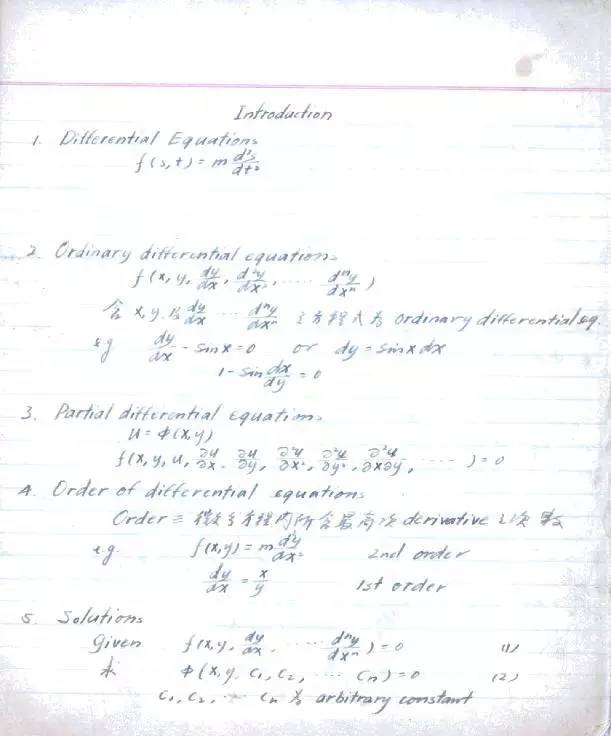 Introduction
1. Differential Equations
f(s,t) = m d²s/dt²
2. Ordinary differential equations
f(x, y, dy/dx, d²y/dx², ..... dⁿy/dxⁿ)
含 x, y, 及 dy/dx ... dⁿy/dxⁿ 之方程式為 ordinary differential eq.
eg dy/dx - sin x = 0 or dy = sin x dx
1 - sin dx/dy = 0
3. Partial differential equations
u = φ(x,y)
f(x, y, u, ∂u/∂x, ∂u/∂y, ∂²u/∂x², ∂²u/∂y², ∂²u/∂x∂y, ......) = 0
4. Order of differential equations
Order ≡ 微分方程內所含最高次 derivative 之次數
e.g. f(x,y) = m d²y/dx² 2nd order
dy/dx = x/y 1st order
5. Solutions
Given f(x, y, dy/dx, ..... dⁿy/dxⁿ) = 0 (1)
求 φ(x, y, C₁, C₂, .... Cn) = 0 (2)
C₁, C₂, ... Cn 為 arbitrary constant